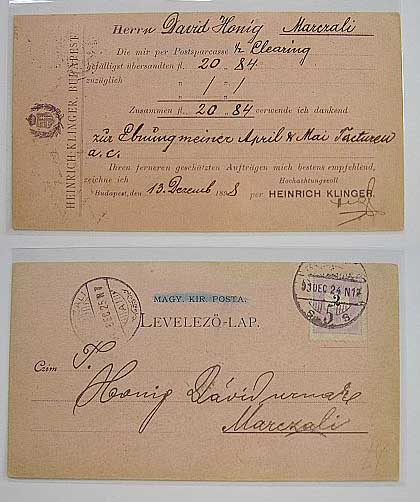 Herrn David Honig Marczali
Die mir per Postsparcasse & Clearing
gefälligst übersandten fl. 20.84
zuzüglich " / " /
Zusammen fl. 20.84 verwende ich dankend
zur meiner April & Mai Facturen
a.c.
Ihren ferneren geschätzten Aufträgen mich bestens empfehlend,
zeichne ich Hochachtungsvoll
Budapest, den 13. Dezemb 189 per HEINRICH KLINGER.
HEINRICH KLINGER, BUDAPEST
MAGY. KIR. POSTA.
LEVELEZŐ-LAP.
93 DEC 24 N12
Czim T.
Honig Dávid urnak
Marczali